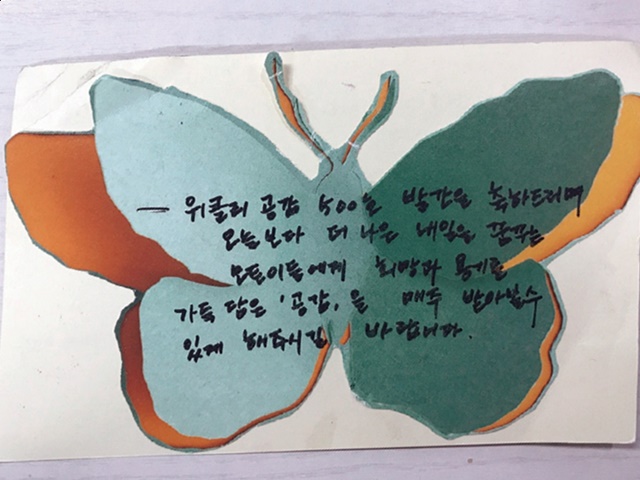 — 위클리 공감 500호 발간을 축하드리며
오늘보다 더 나은 내일을 꿈꾸는
모든이들에게 희망과 용기를
가득 담은 '공감' 을 매주 받아볼수
있게 해주시길 바랍니다.